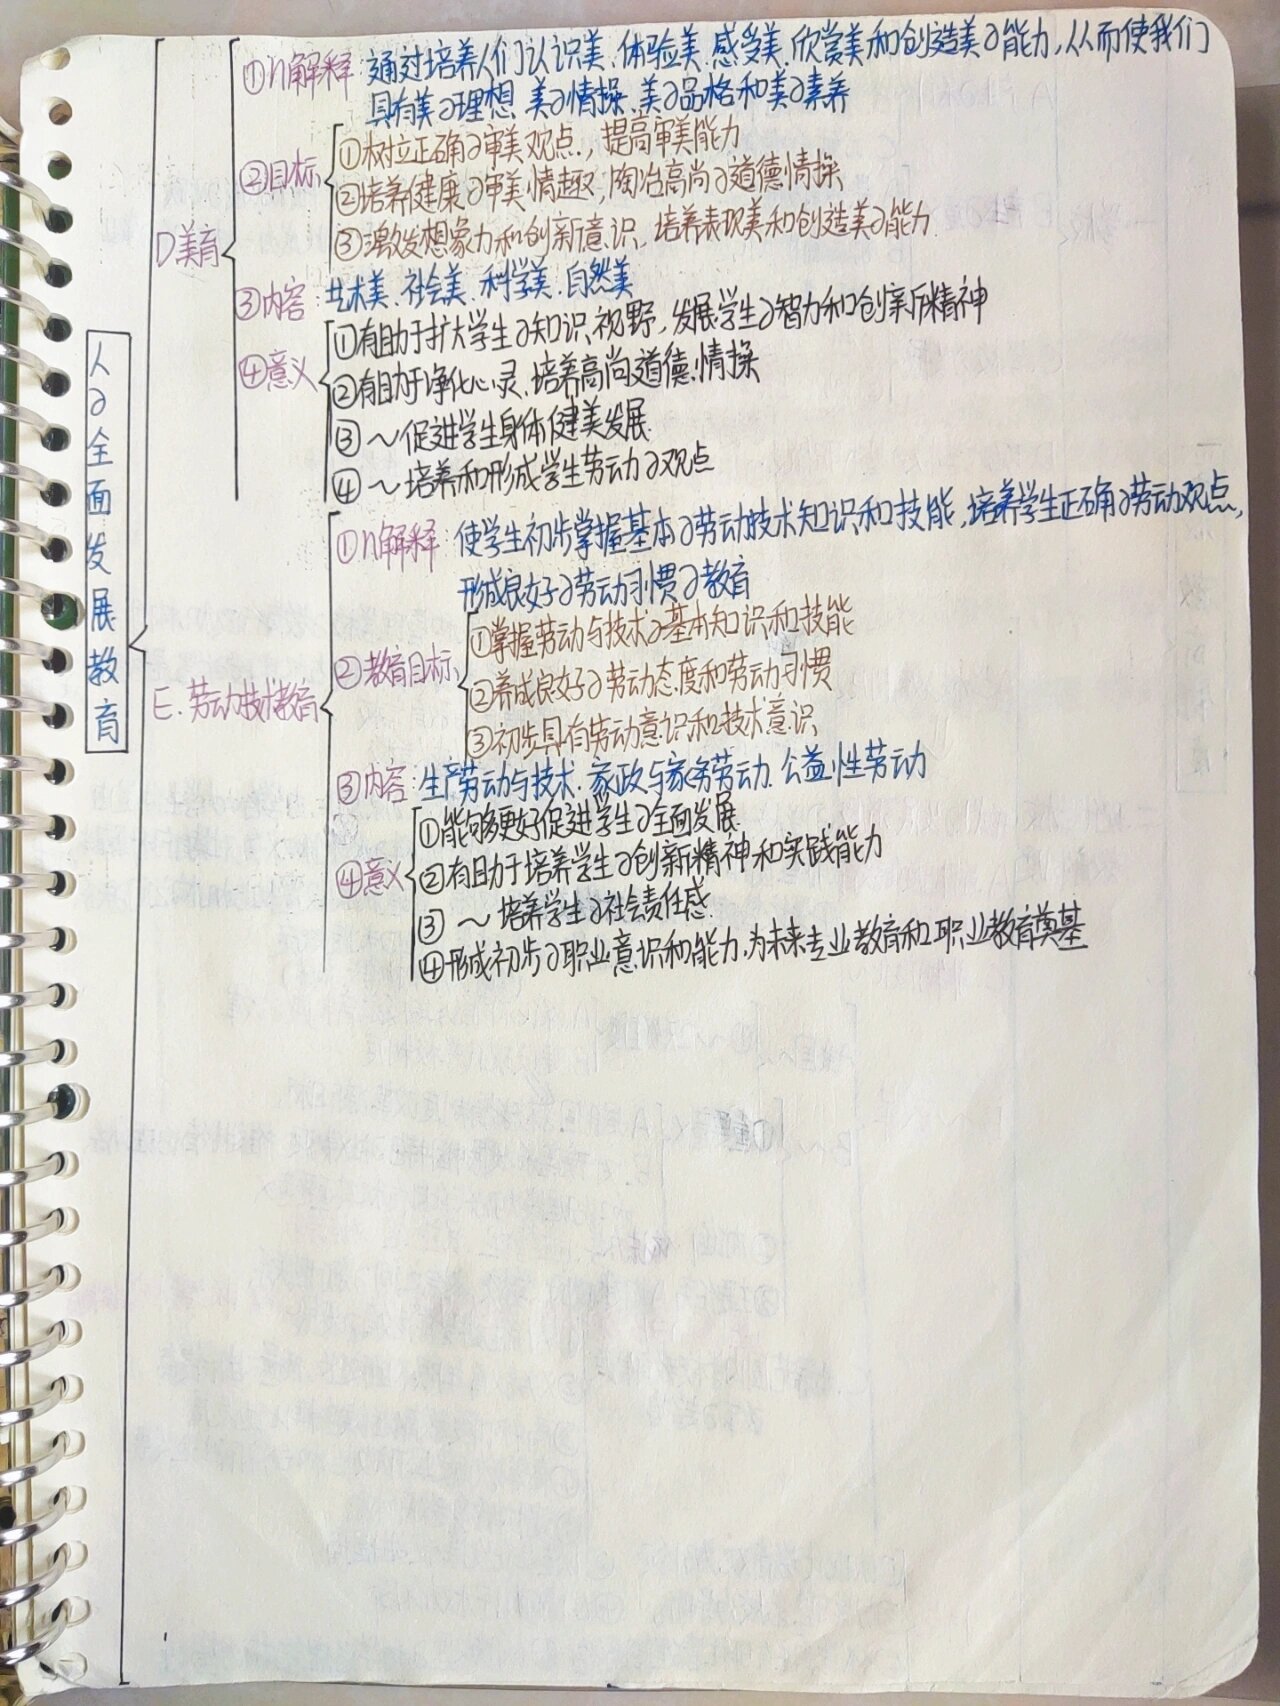 人の全面发展教育
D美育
①n解释:通过培养人们认识美、体验美、感受美、欣赏美和创造美の能力,从而使我们
具有美の理想、美の情操、美の品格和美の素养
②目标
①树立正确の审美观点,提高审美能力
②培养健康の审美情趣,陶冶高尚の道德情操
③激发想象力和创新意识,培养表现美和创造美の能力
③内容:艺术美、社会美、科学美、自然美
④意义
①有助于扩大学生の知识视野,发展学生の智力和创新精神
②有助于净化心灵、培养高尚道德情操
③~促进学生身体健美发展
④~培养和形成学生劳动の观点
E.劳动技术教育
①n解释:使学生初步掌握基本の劳动技术知识和技能,培养学生正确の劳动观点,
形成良好の劳动习惯の教育
②教育目标
①掌握劳动与技术の基本知识和技能
②养成良好の劳动态度和劳动习惯
③初步具有劳动意识和技术意识
③内容:生产劳动与技术、家政与家务劳动、公益性劳动
④意义
①能够更好促进学生の全面发展
②有助于培养学生の创新精神和实践能力
③~培养学生の社会责任感
④形成初步の职业意识和能力,为未来专业教育和职业教育奠基